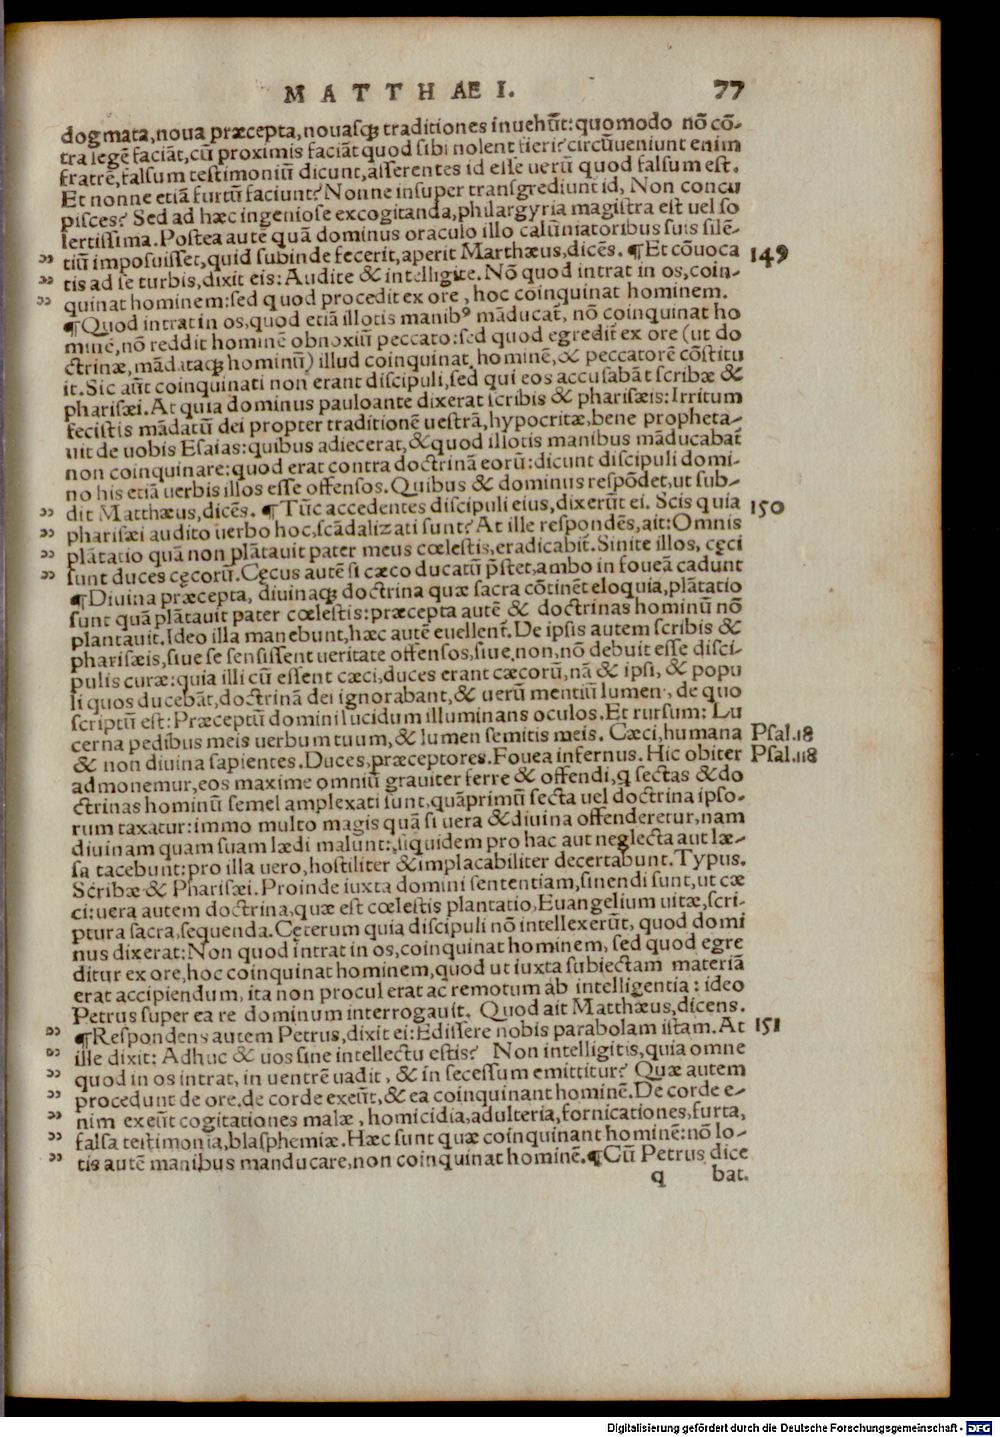 M A T T H AE I. 77
dogmata,noua præcepta,nouasq; traditiones inuehūt:quomodo nō cō-
tra legē faciāt,cū proximis faciāt quod sibi nolent fieri?circūueniunt enim
fratrē,falsum testimoniū dicunt,asserentes id esse uerū quod falsum est.
Et nonne etiā furtū faciunt?Nonne insuper transgrediunt id, Non concu
pisces? Sed ad hæc ingeniose excogitanda,philargyria magistra est uel so
lertissima.Postea autē quā dominus oraculo illo calūniatoribus suis silē-
„ tiū imposuisset,quid subinde fecerit,aperit Matthæus,dicēs. ¶Et cōuoca 149
„ tis ad se turbis,dixit eis: Audite & intelligite. Nō quod intrat in os,coin-
„ quinat hominem:sed quod procedit ex ore, hoc coinquinat hominem.
¶Quod intrat in os,quod etiā illotis manibꝰ māducat̄, nō coinquinat ho
minē,nō reddit hominē obnoxiū peccato:sed quod egredit̄ ex ore (ut do
ctrinæ,mādataq; hominū) illud coinquinat hominē,& peccatorē cōstitu
it.Sic aūt coinquinati non erant discipuli,sed qui eos accusabāt scribæ &
pharisæi.At quia dominus pauloante dixerat scribis & pharisæis:Irritum
fecistis mādatū dei propter traditionē uestrā,hypocritæ,bene propheta-
uit de uobis Esaias:quibus adiecerat,&quod illotis manibus māducabat̄
non coinquinare:quod erat contra doctrinā eorū:dicunt discipuli domi-
no his etiā uerbis illos esse offensos.Quibus & dominus respōdet,ut sub-
„ dit Matthæus,dicēs. ¶Tūc accedentes discipuli eius,dixerūt ei. Scis quia 150
„ pharisæi audito uerbo hoc,scādalizati sunt?At ille respondēs,ait:Omnis
„ plātatio quā non plātauit pater meus cœlestis,eradicabit̄.Sinite illos, cęci
„ sunt duces cęcorū.Cęcus autē si cæco ducatū p̄stet,ambo in foueā cadunt
¶Diuina præcepta, diuinaq; doctrina quæ sacra cōtinēt eloquia,plātatio
sunt quā plātauit pater cœlestis:præcepta autē & doctrinas hominū nō
plantauit.Ideo illa manebunt,hæc autē euellent̄.De ipsis autem scribis &
pharisæis,siue se sensissent ueritate offensos,siue non,nō debuit esse disci-
pulis curæ:quia illi cū essent cæci,duces erant cæcorū,nā & ipsi, & popu
li quos ducebāt,doctrinā dei ignorabant,& uerū mentiū lumen, de quo
scriptū est:Præceptū domini lucidum illuminans oculos.Et rursum: Lu
cerna pedibus meis uerbum tuum,& lumen semitis meis. Cæci,humana Psal.18
& non diuina sapientes.Duces,præceptores.Fouea infernus. Hic obiter Psal.118
admonemur,eos maxime omniū grauiter ferre & offendi,q sectas &do
ctrinas hominū semel amplexati sunt,quāprimū secta uel doctrina ipso-
rum taxatur:immo multo magis quā si uera &diuina offenderetur,nam
diuinam quam suam lædi malunt:siquidem pro hac aut neglecta aut læ-
sa tacebunt:pro illa uero,hostiliter &implacabiliter decertabunt.Typus.
Scribæ & Pharisæi.Proinde iuxta domini sententiam,sinendi sunt,ut cæ
ci:uera autem doctrina,quæ est cœlestis plantatio,Euangelium uitæ,scri-
ptura sacra,sequenda.Cęterum quia discipuli nō intellexerūt, quod domi
nus dixerat:Non quod intrat in os,coinquinat hominem, sed quod egre
ditur ex ore,hoc coinquinat hominem,quod ut iuxta subiectam materiā
erat accipiendum, ita non procul erat ac remotum ab intelligentia: ideo
Petrus super ea re dominum interrogauit. Quod ait Matthæus,dicens.
„ ¶Respondens autem Petrus,dixit ei:Edissere nobis parabolam istam.At 151
„ ille dixit: Adhuc & uos sine intellectu estis? Non intelligitis,quia omne
„ quod in os intrat, in uentrē uadit, & in secessum emittitur? Quæ autem
„ procedunt de ore,de corde exeūt,& ea coinquinant hominē.De corde e-
„ nim exeūt cogitationes malæ, homicidia,adulteria,fornicationes,furta,
„ falsa testimonia,blasphemiæ.Hæc sunt quæ coinquinant hominē:nō lo-
„ tis autē manibus manducare,non coinquinat hominē.¶Cū Petrus dice
q bat.
Digitalisierung gefördert durch die Deutsche Forschungsgemeinschaft - DFG